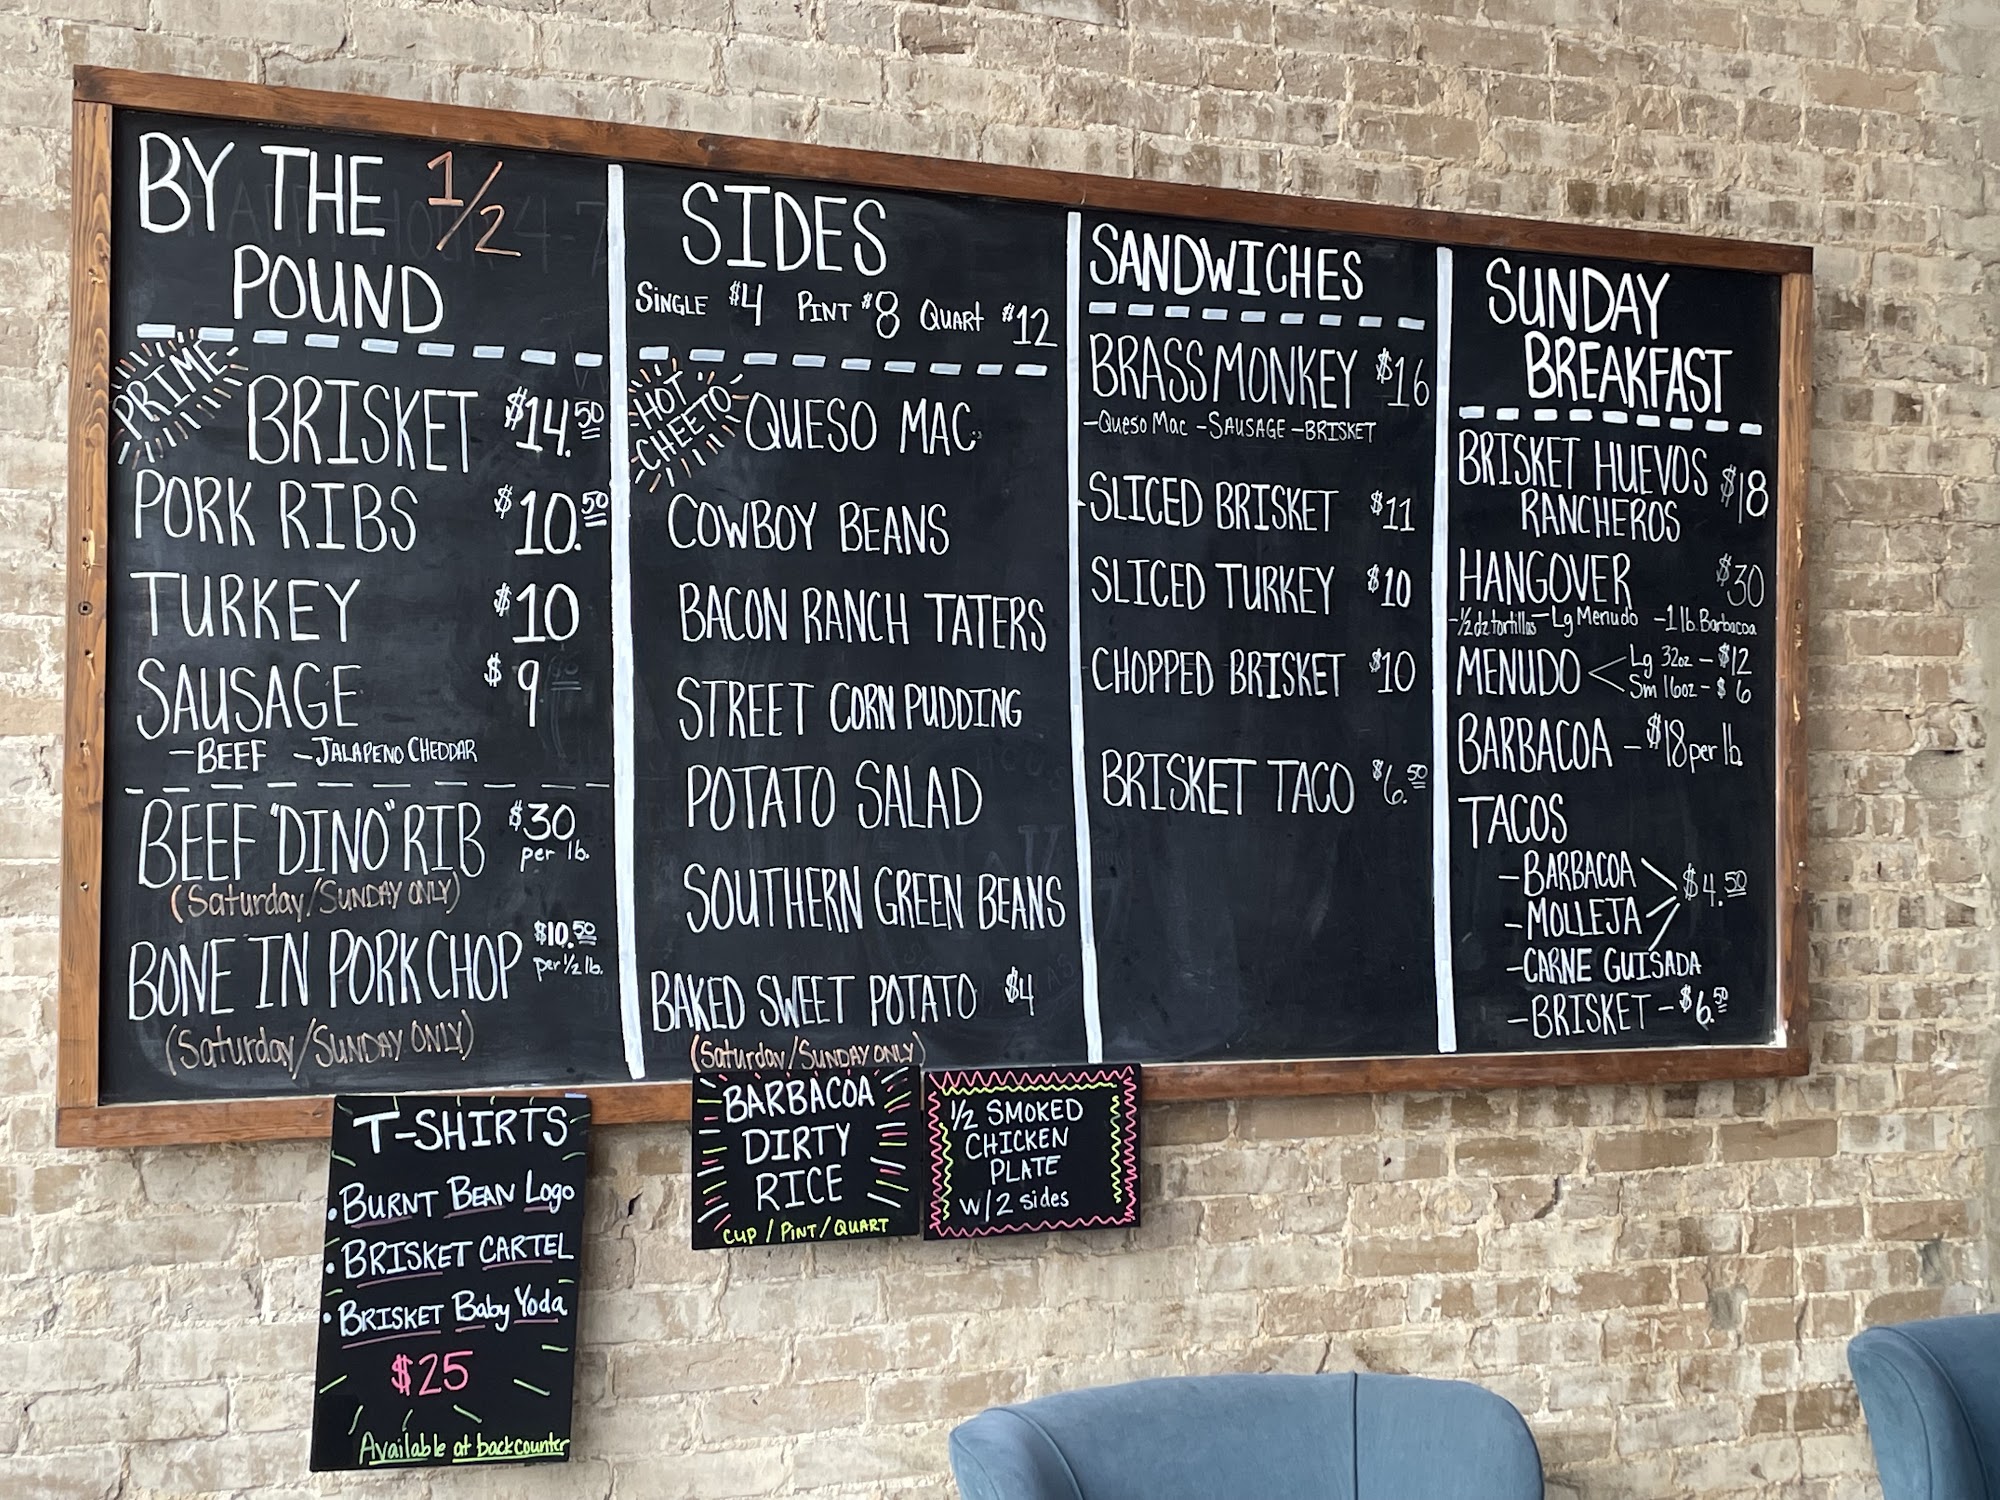 BY THE 1/2
POUND
PRIME
BRISKET $14.50
PORK RIBS $10.50
TURKEY $10
SAUSAGE $9
-BEEF -JALAPENO CHEDDAR
BEEF "DINO" RIB $30
per lb.
(Saturday/SUNDAY ONLY)
BONE IN PORK CHOP $10.50
per 1/2 lb.
(Saturday/SUNDAY ONLY)
SIDES
SINGLE $4 PINT $8 QUART $12
HOT
CHEETO
QUESO MAC
COWBOY BEANS
BACON RANCH TATERS
STREET CORN PUDDING
POTATO SALAD
SOUTHERN GREEN BEANS
BAKED SWEET POTATO $4
(Saturday/SUNDAY ONLY)
SANDWICHES
BRASS MONKEY $16
-Queso Mac -SAUSAGE -BRISKET
SLICED BRISKET $11
SLICED TURKEY $10
CHOPPED BRISKET $10
BRISKET TACO $6.50
SUNDAY
BREAKFAST
BRISKET HUEVOS
RANCHEROS $18
HANGOVER $30
-1/2 dz tortillas -Lg Menudo -1 lb. Barbacoa
MENUDO Lg 32oz - $12
Sm 16oz - $6
BARBACOA - $18 per lb.
TACOS
-BARBACOA
-MOLLEJA $4.50
-CARNE GUISADA
-BRISKET - $6.50
T-SHIRTS
• BURNT BEAN LOGO
• BRISKET CARTEL
• BRISKET Baby Yoda
$25
Available at back counter
BARBACOA
DIRTY
RICE
CUP / PINT / QUART
1/2 SMOKED
CHICKEN
PLATE
w/ 2 sides